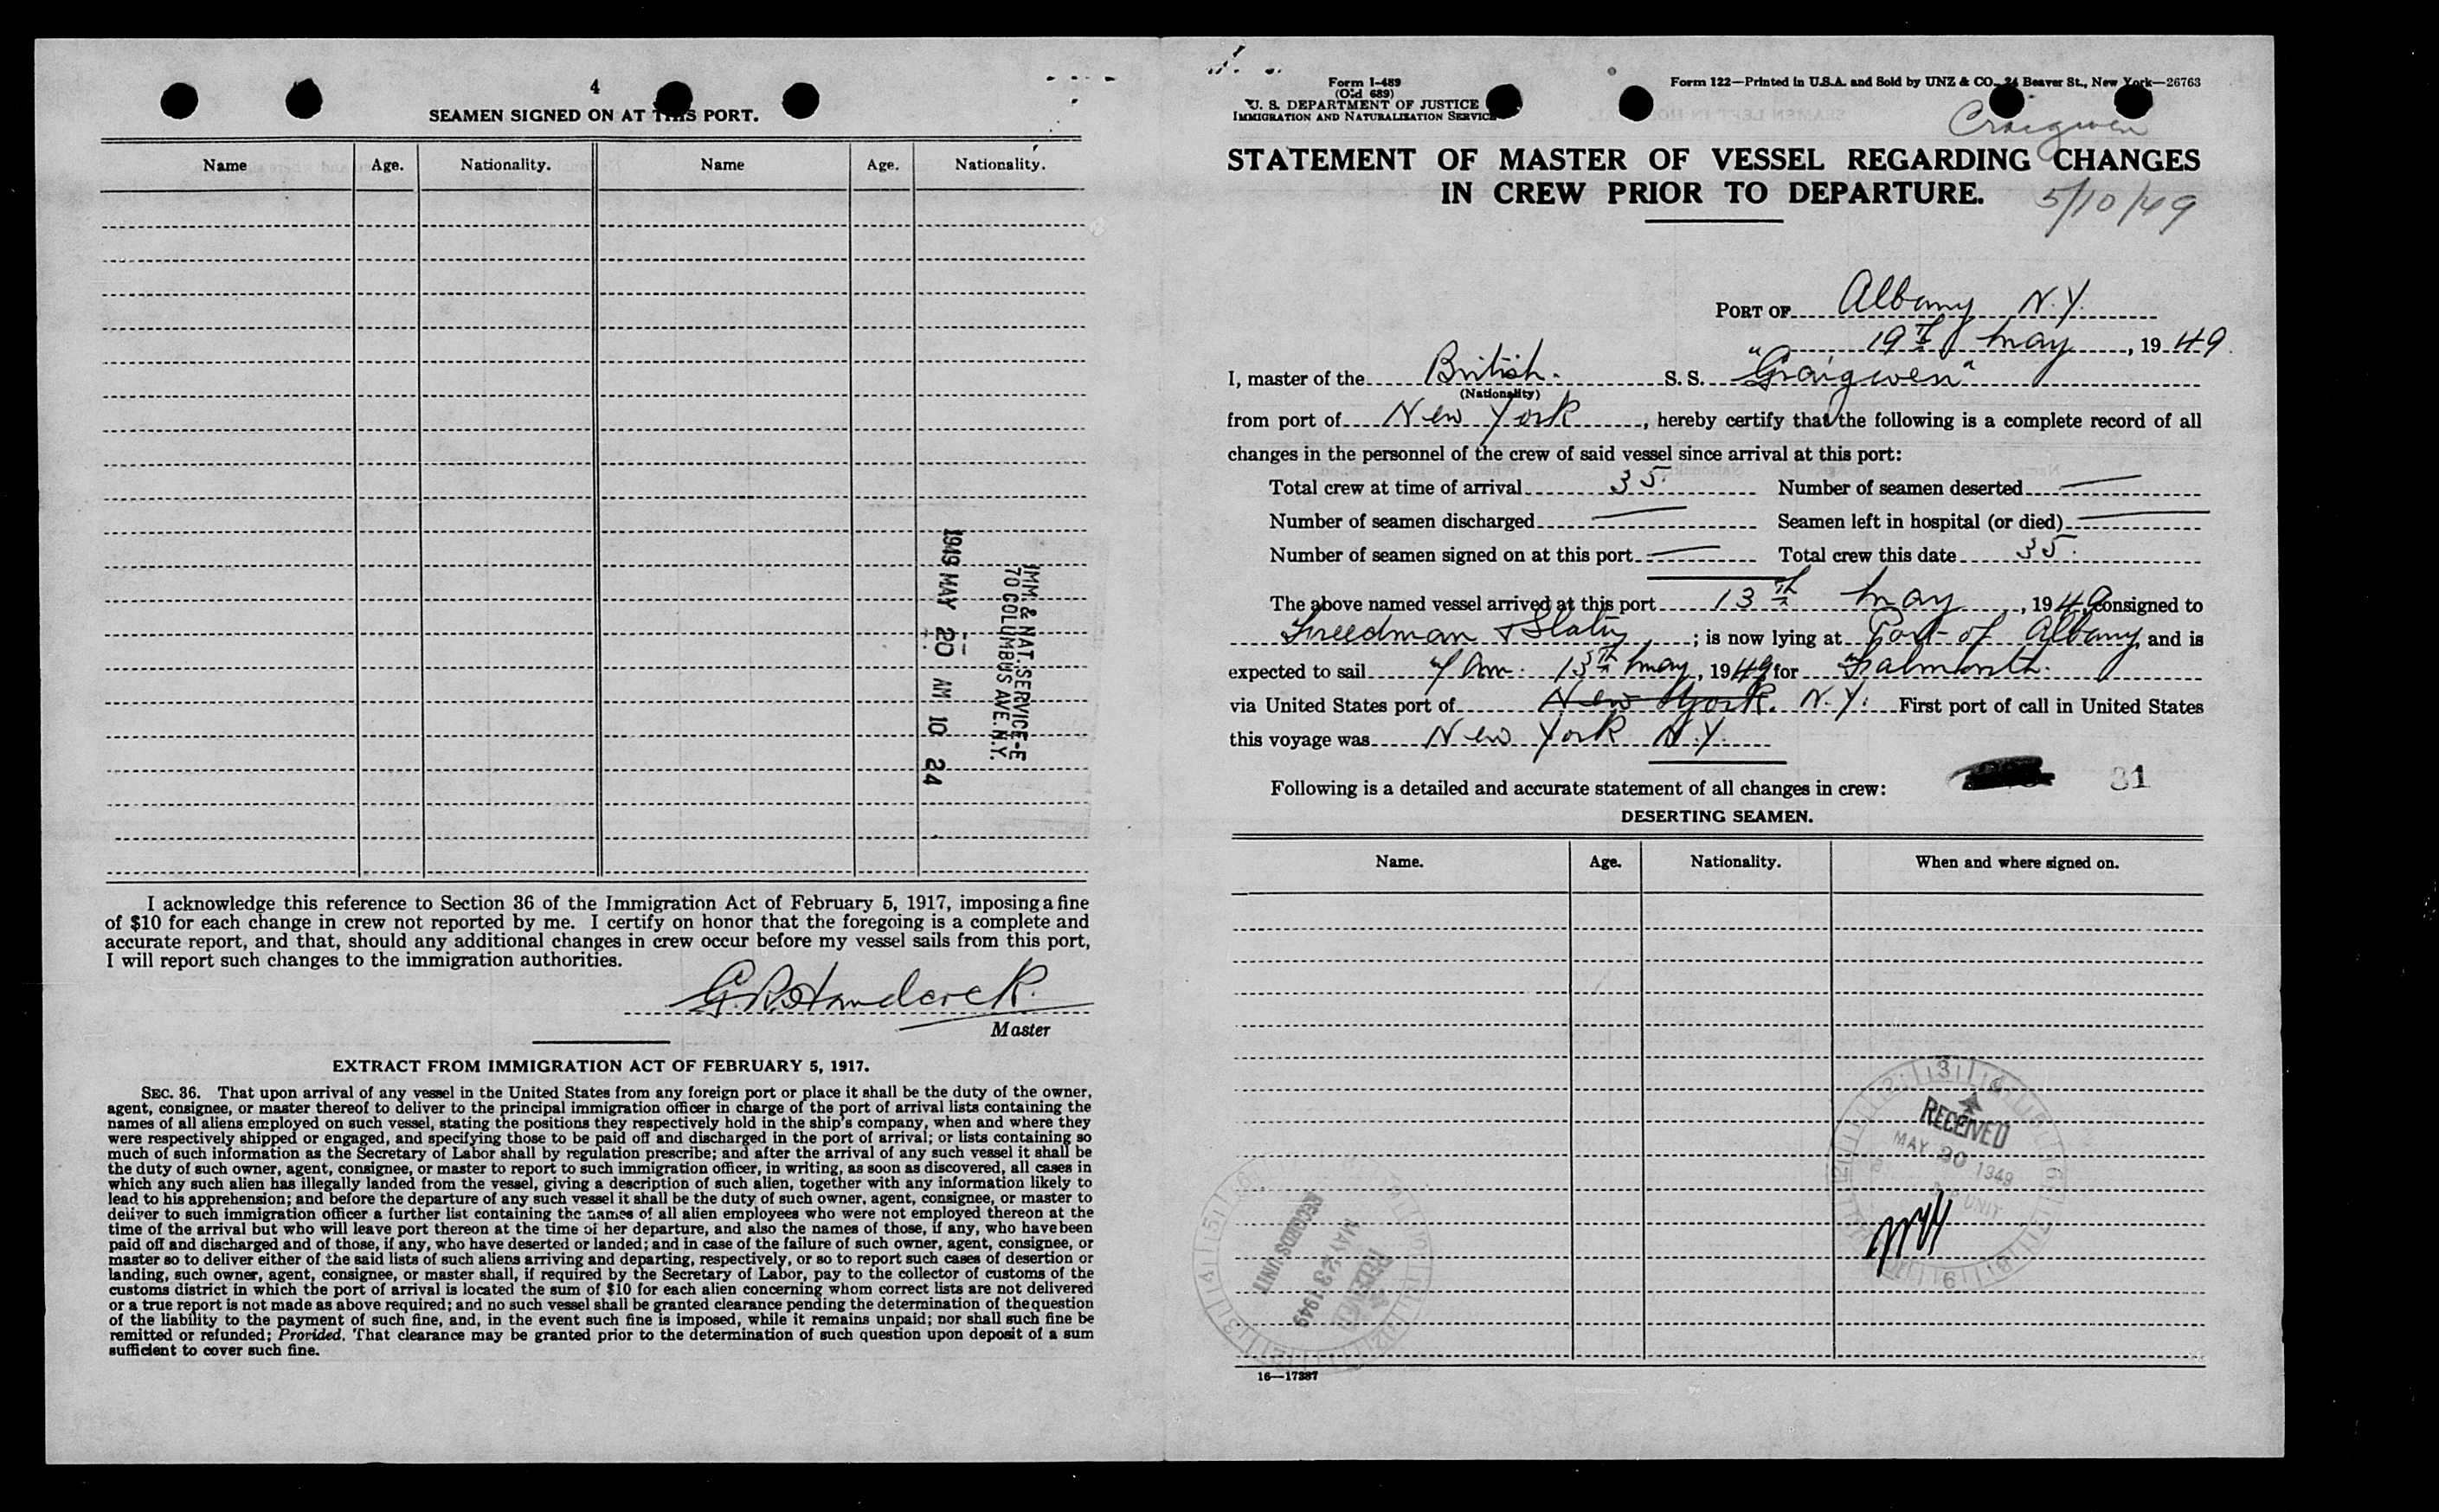 4
SEAMEN SIGNED ON AT THIS PORT.
Name Age. Nationality. Name Age. Nationality.
1949 MAY 20 AM 10 24
IMM. & NAT. SERVICE-E
70 COLUMBUS AVE. N.Y.
I acknowledge this reference to Section 36 of the Immigration Act of February 5, 1917, imposing a fine
of $10 for each change in crew not reported by me. I certify on honor that the foregoing is a complete and
accurate report, and that, should any additional changes in crew occur before my vessel sails from this port,
I will report such changes to the immigration authorities.
Master
EXTRACT FROM IMMIGRATION ACT OF FEBRUARY 5, 1917.
SEC. 36. That upon arrival of any vessel in the United States from any foreign port or place it shall be the duty of the owner,
agent, consignee, or master thereof to deliver to the principal immigration officer in charge of the port of arrival lists containing the
names of all aliens employed on such vessel, stating the positions they respectively hold in the ship's company, when and where they
were respectively shipped or engaged, and specifying those to be paid off and discharged in the port of arrival; or lists containing so
much of such information as the Secretary of Labor shall by regulation prescribe; and after the arrival of any such vessel it shall be
the duty of such owner, agent, consignee, or master to report to such immigration officer, in writing, as soon as discovered, all cases in
which any such alien has illegally landed from the vessel, giving a description of such alien, together with any information likely to
lead to his apprehension; and before the departure of any such vessel it shall be the duty of such owner, agent, consignee, or master to
deliver to such immigration officer a further list containing the names of all alien employees who were not employed thereon at the
time of the arrival but who will leave port thereon at the time of her departure, and also the names of those, if any, who have been
paid off and discharged and of those, if any, who have deserted or landed; and in case of the failure of such owner, agent, consignee, or
master so to deliver either of the said lists of such aliens arriving and departing, respectively, or so to report such cases of desertion or
landing, such owner, agent, consignee, or master shall, if required by the Secretary of Labor, pay to the collector of customs of the
customs district in which the port of arrival is located the sum of $10 for each alien concerning whom correct lists are not delivered
or a true report is not made as above required; and no such vessel shall be granted clearance pending the determination of the question
of the liability to the payment of such fine, and, in the event such fine is imposed, while it remains unpaid; nor shall such fine be
remitted or refunded; Provided, That clearance may be granted prior to the determination of such question upon deposit of a sum
sufficient to cover such fine.
Form I-489
(Old 689)
U. S. DEPARTMENT OF JUSTICE
IMMIGRATION AND NATURALIZATION SERVICE
Form 122—Printed in U.S.A. and Sold by UNZ & CO., 24 Beaver St., New York—26763
Craigwen
STATEMENT OF MASTER OF VESSEL REGARDING CHANGES
IN CREW PRIOR TO DEPARTURE.
5/10/49
PORT OF Albany N.Y.
19th May, 19 49.
I, master of the British. S. S. "Graigwen"
(Nationality)
from port of New York, hereby certify that the following is a complete record of all
changes in the personnel of the crew of said vessel since arrival at this port:
Total crew at time of arrival 35. Number of seamen deserted —
Number of seamen discharged — Seamen left in hospital (or died) —
Number of seamen signed on at this port — Total crew this date 35.
The above named vessel arrived at this port 13th May, 1949, consigned to
Freedman & Slater; is now lying at Port of Albany and is
expected to sail 7 Am. May, 1949, for Falmouth.
via United States port of New York. N.Y. First port of call in United States
this voyage was New York N.Y.
Following is a detailed and accurate statement of all changes in crew: 31
DESERTING SEAMEN.
Name. Age. Nationality. When and where signed on.
RECEIVED
MAY 20 1949
UNIT
RECEIVED
MAY 23 1949
RECORDS UNIT
16—17387